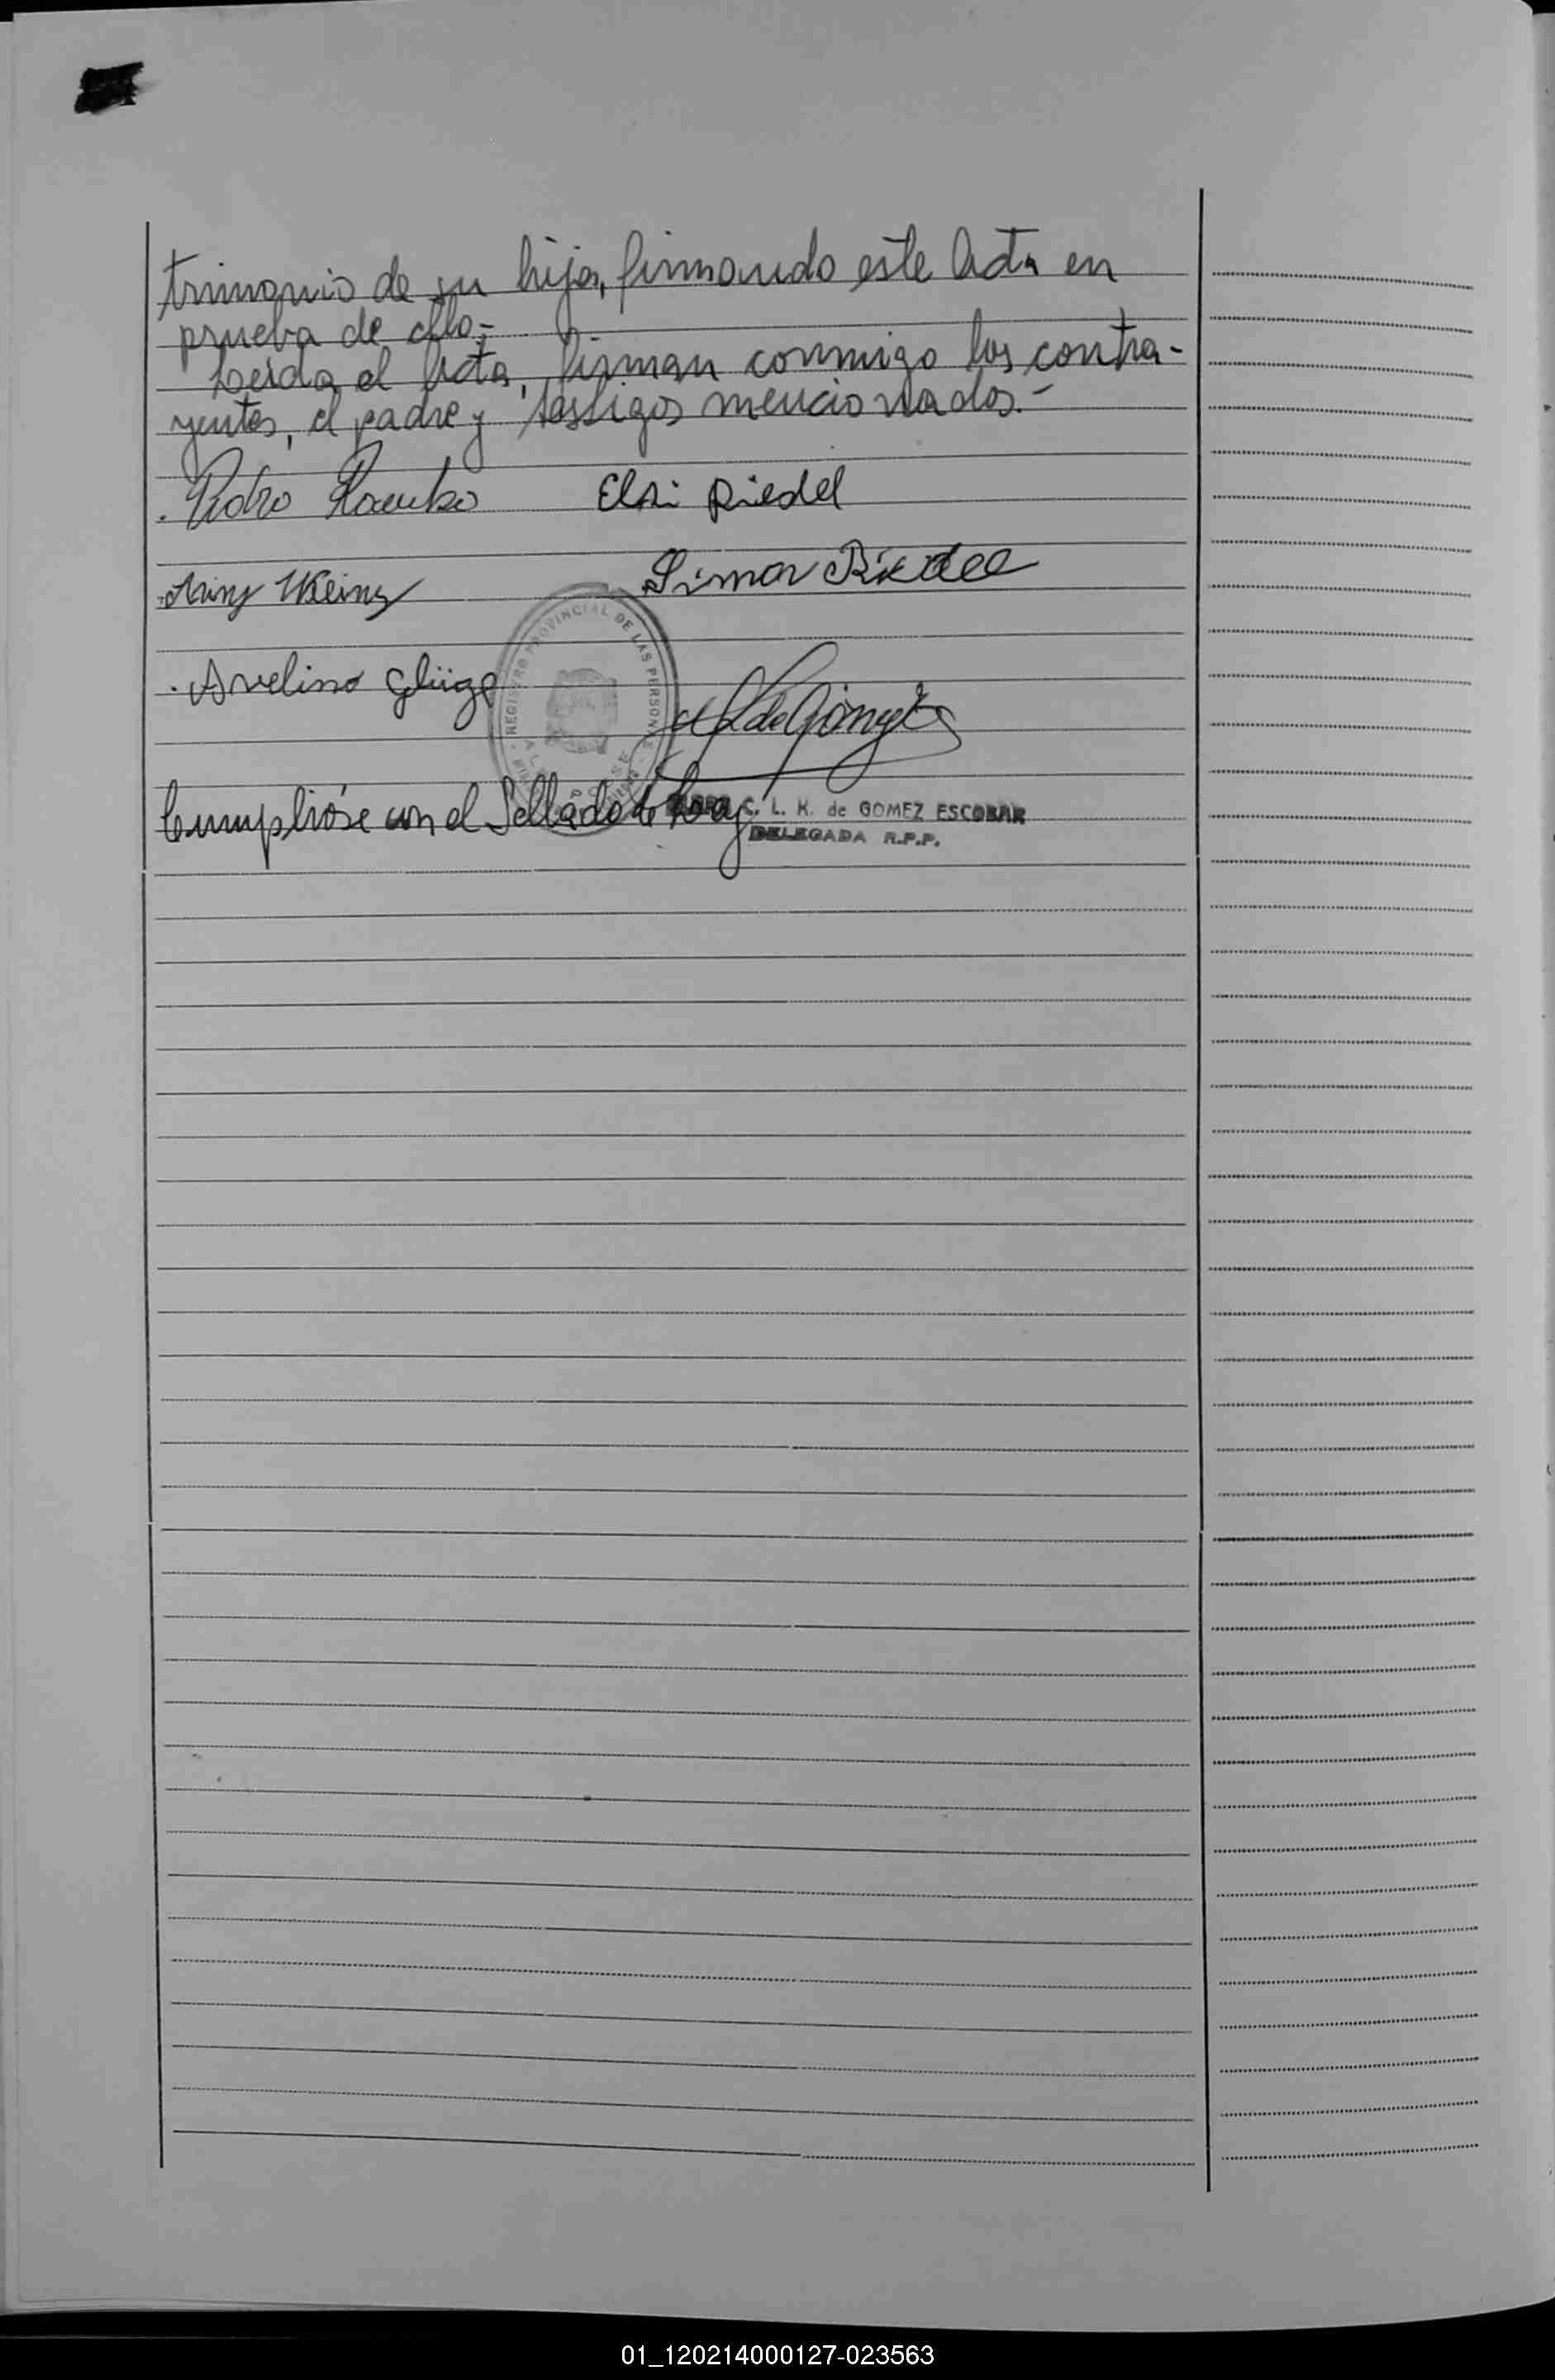 trimonio de su hija, firmando este Acta en
prueba de ello.-
Leída el Acta, firman conmigo los contra-
yentes, el padre y testigos mencionados.-
Pedro Elsi Riedel
Riedel
Avelino
REGISTRO PROVINCIAL DE LAS PERSONAS
Cumplióse con el Sellado de Ley
C. L. K. de GOMEZ ESCOBAR
DELEGADA R.P.P.
01_120214000127-023563